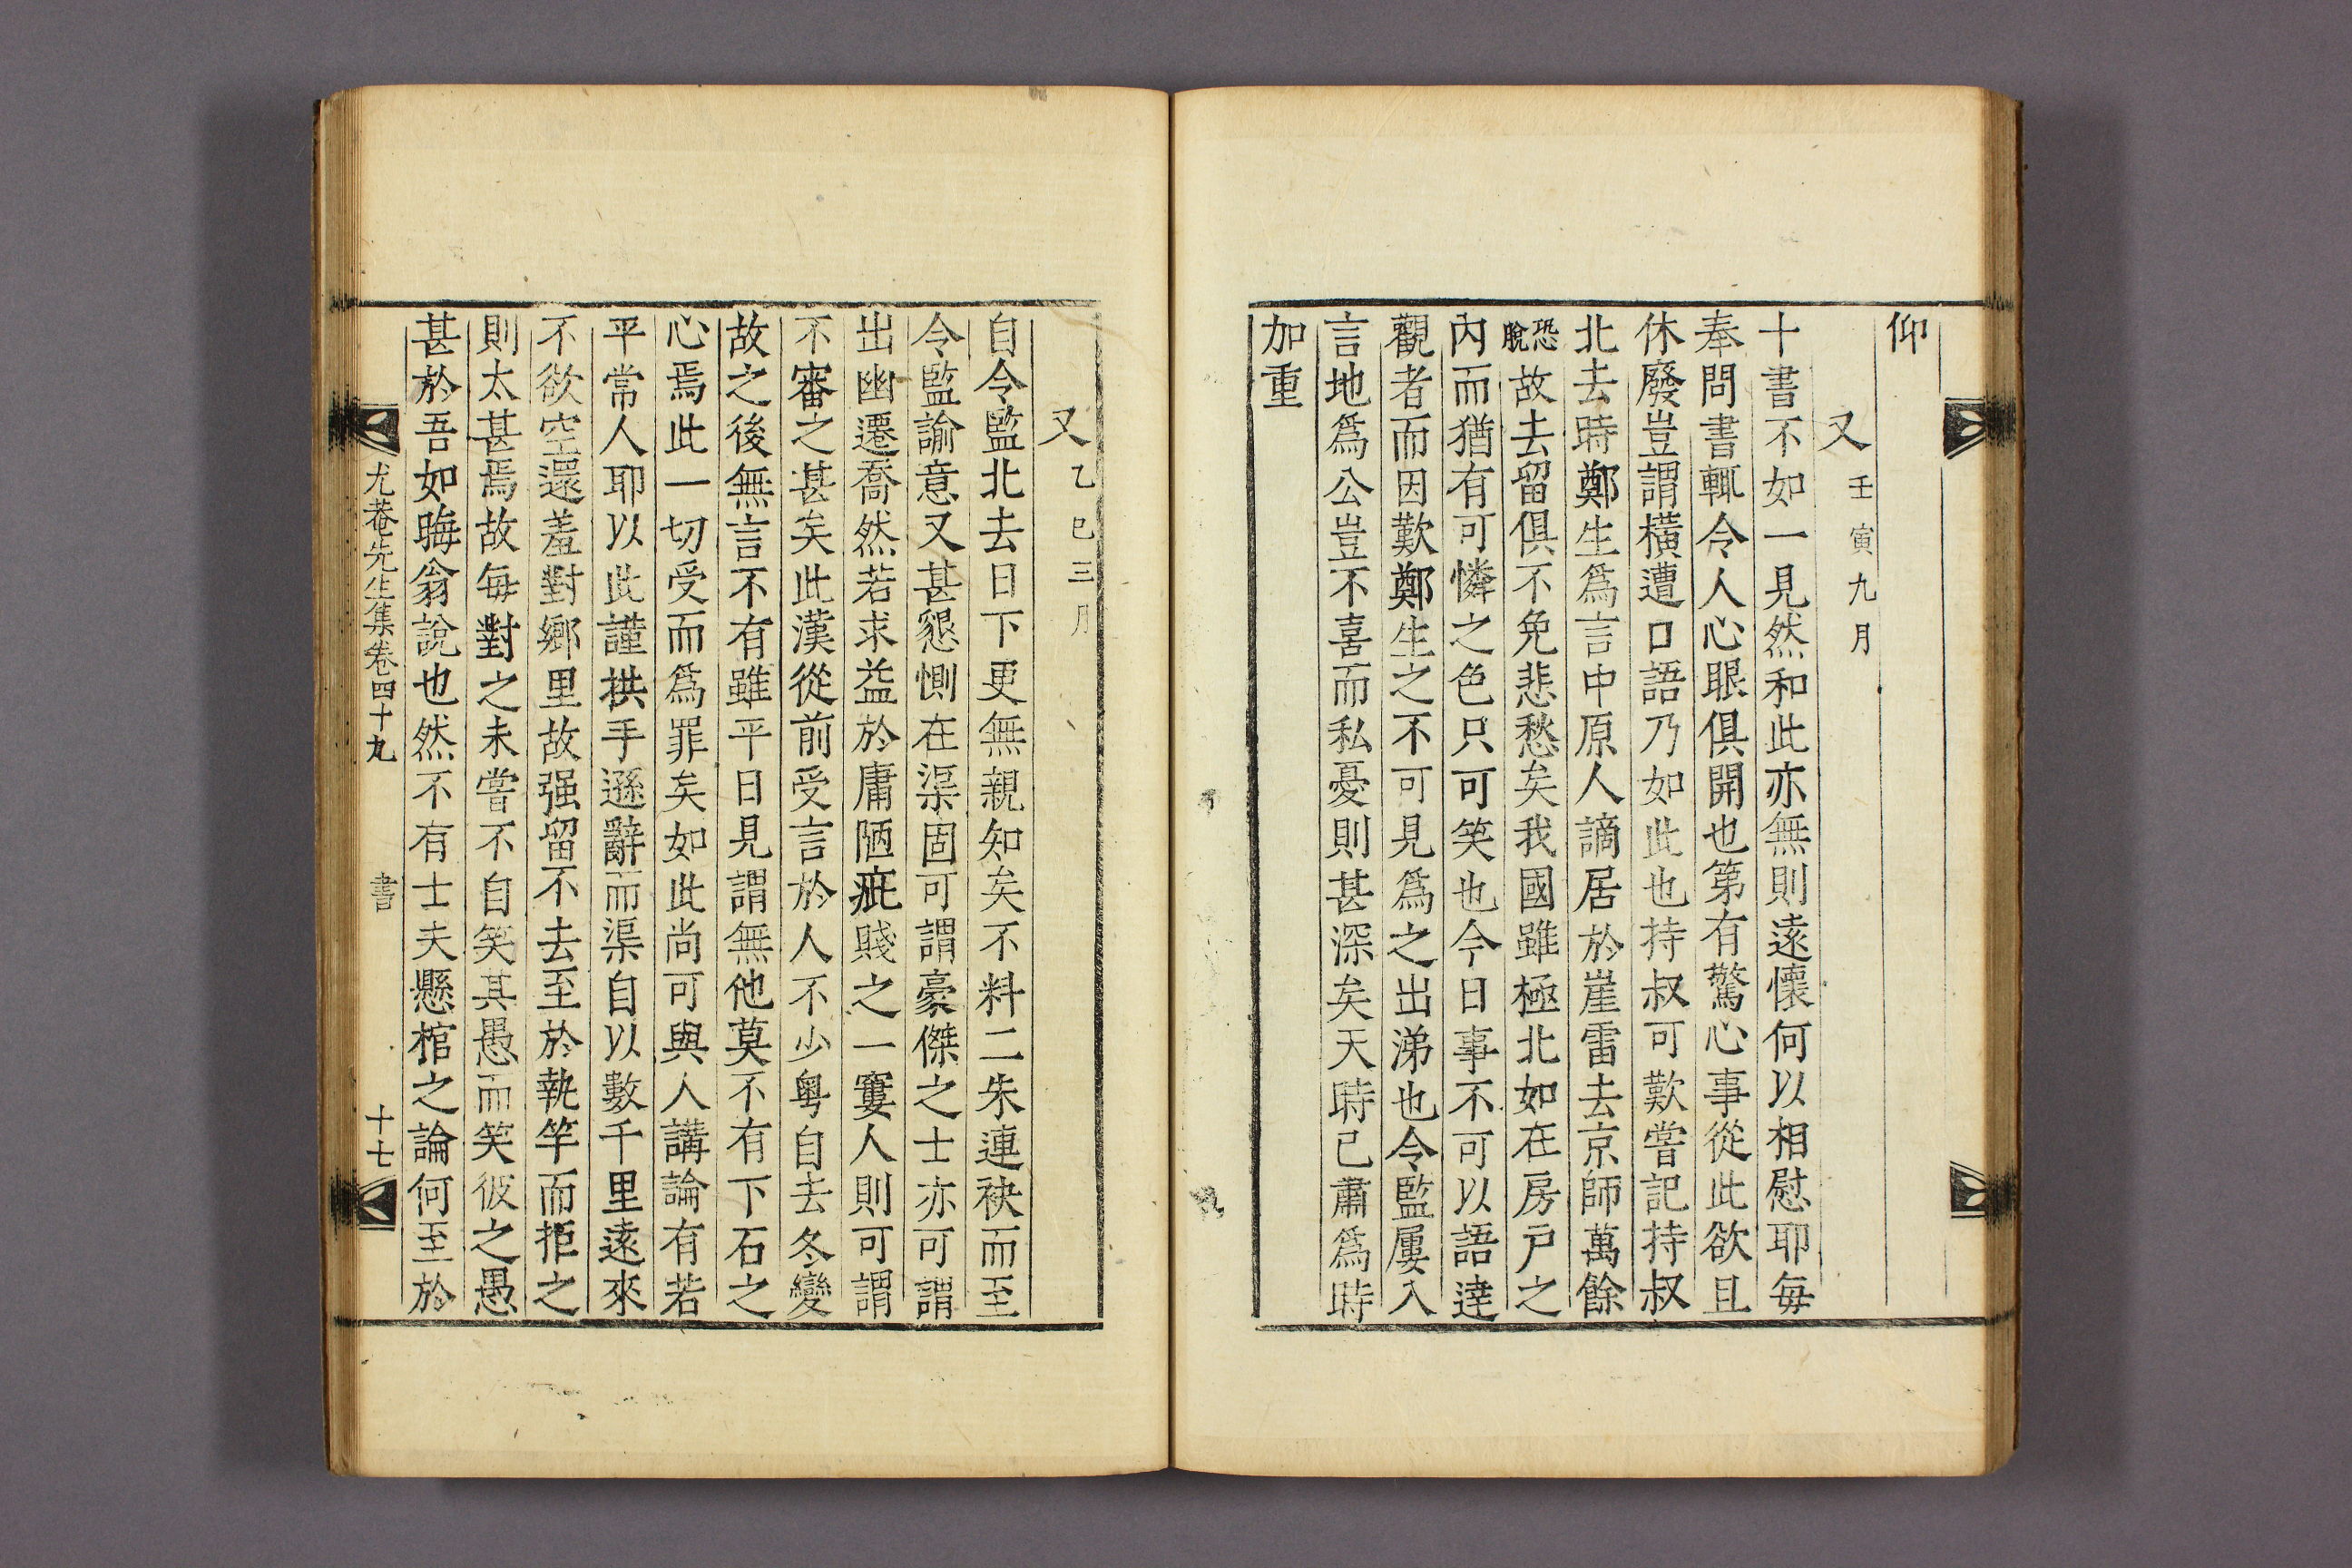 仰
又 壬寅九月
十書不如一見然和此亦無則遠懷何以相慰耶每
奉問書輒令人心眼俱開也第有驚心事從此欲且
休廢豈謂橫遭口語乃如此也持叔可歎嘗記持叔
北去時鄭生爲言中原人謫居於崖雷去京師萬餘
恐脫故去留俱不免悲愁矣我國雖極北如在房戶之
內而猶有可憐之色只可笑也今日事不可以語達
觀者而因歎鄭生之不可見爲之出涕也令監屢入
言地爲公豈不喜而私憂則甚深矣天時已肅爲時
加重
又 乙巳三月
自令監北去日下更無親知矣不料二朱連袂而至
令監諭意又甚懇惻在渠固可謂豪傑之士亦可謂
出幽遷喬然若求益於庸陋疵賤之一窶人則可謂
不審之甚矣此漢從前受言於人不少粤自去冬變
故之後無言不有雖平日見謂無他莫不有下石之
心焉此一切受而爲罪矣如此尚可與人講論有若
平常人耶以此謹拱手遜辭而渠自以數千里遠來
不欲空還羞對鄉里故强留不去至於執竿而拒之
則太甚焉故每對之未嘗不自笑其愚而笑彼之愚
甚於吾如晦翁說也然不有士夫懸棺之論何至於
尤菴先生集卷四十九 書 十七